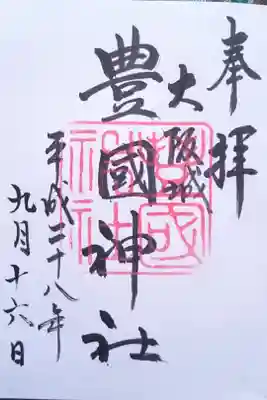 奉拝
大阪城
豊國神社
平成二十八年
九月十六日